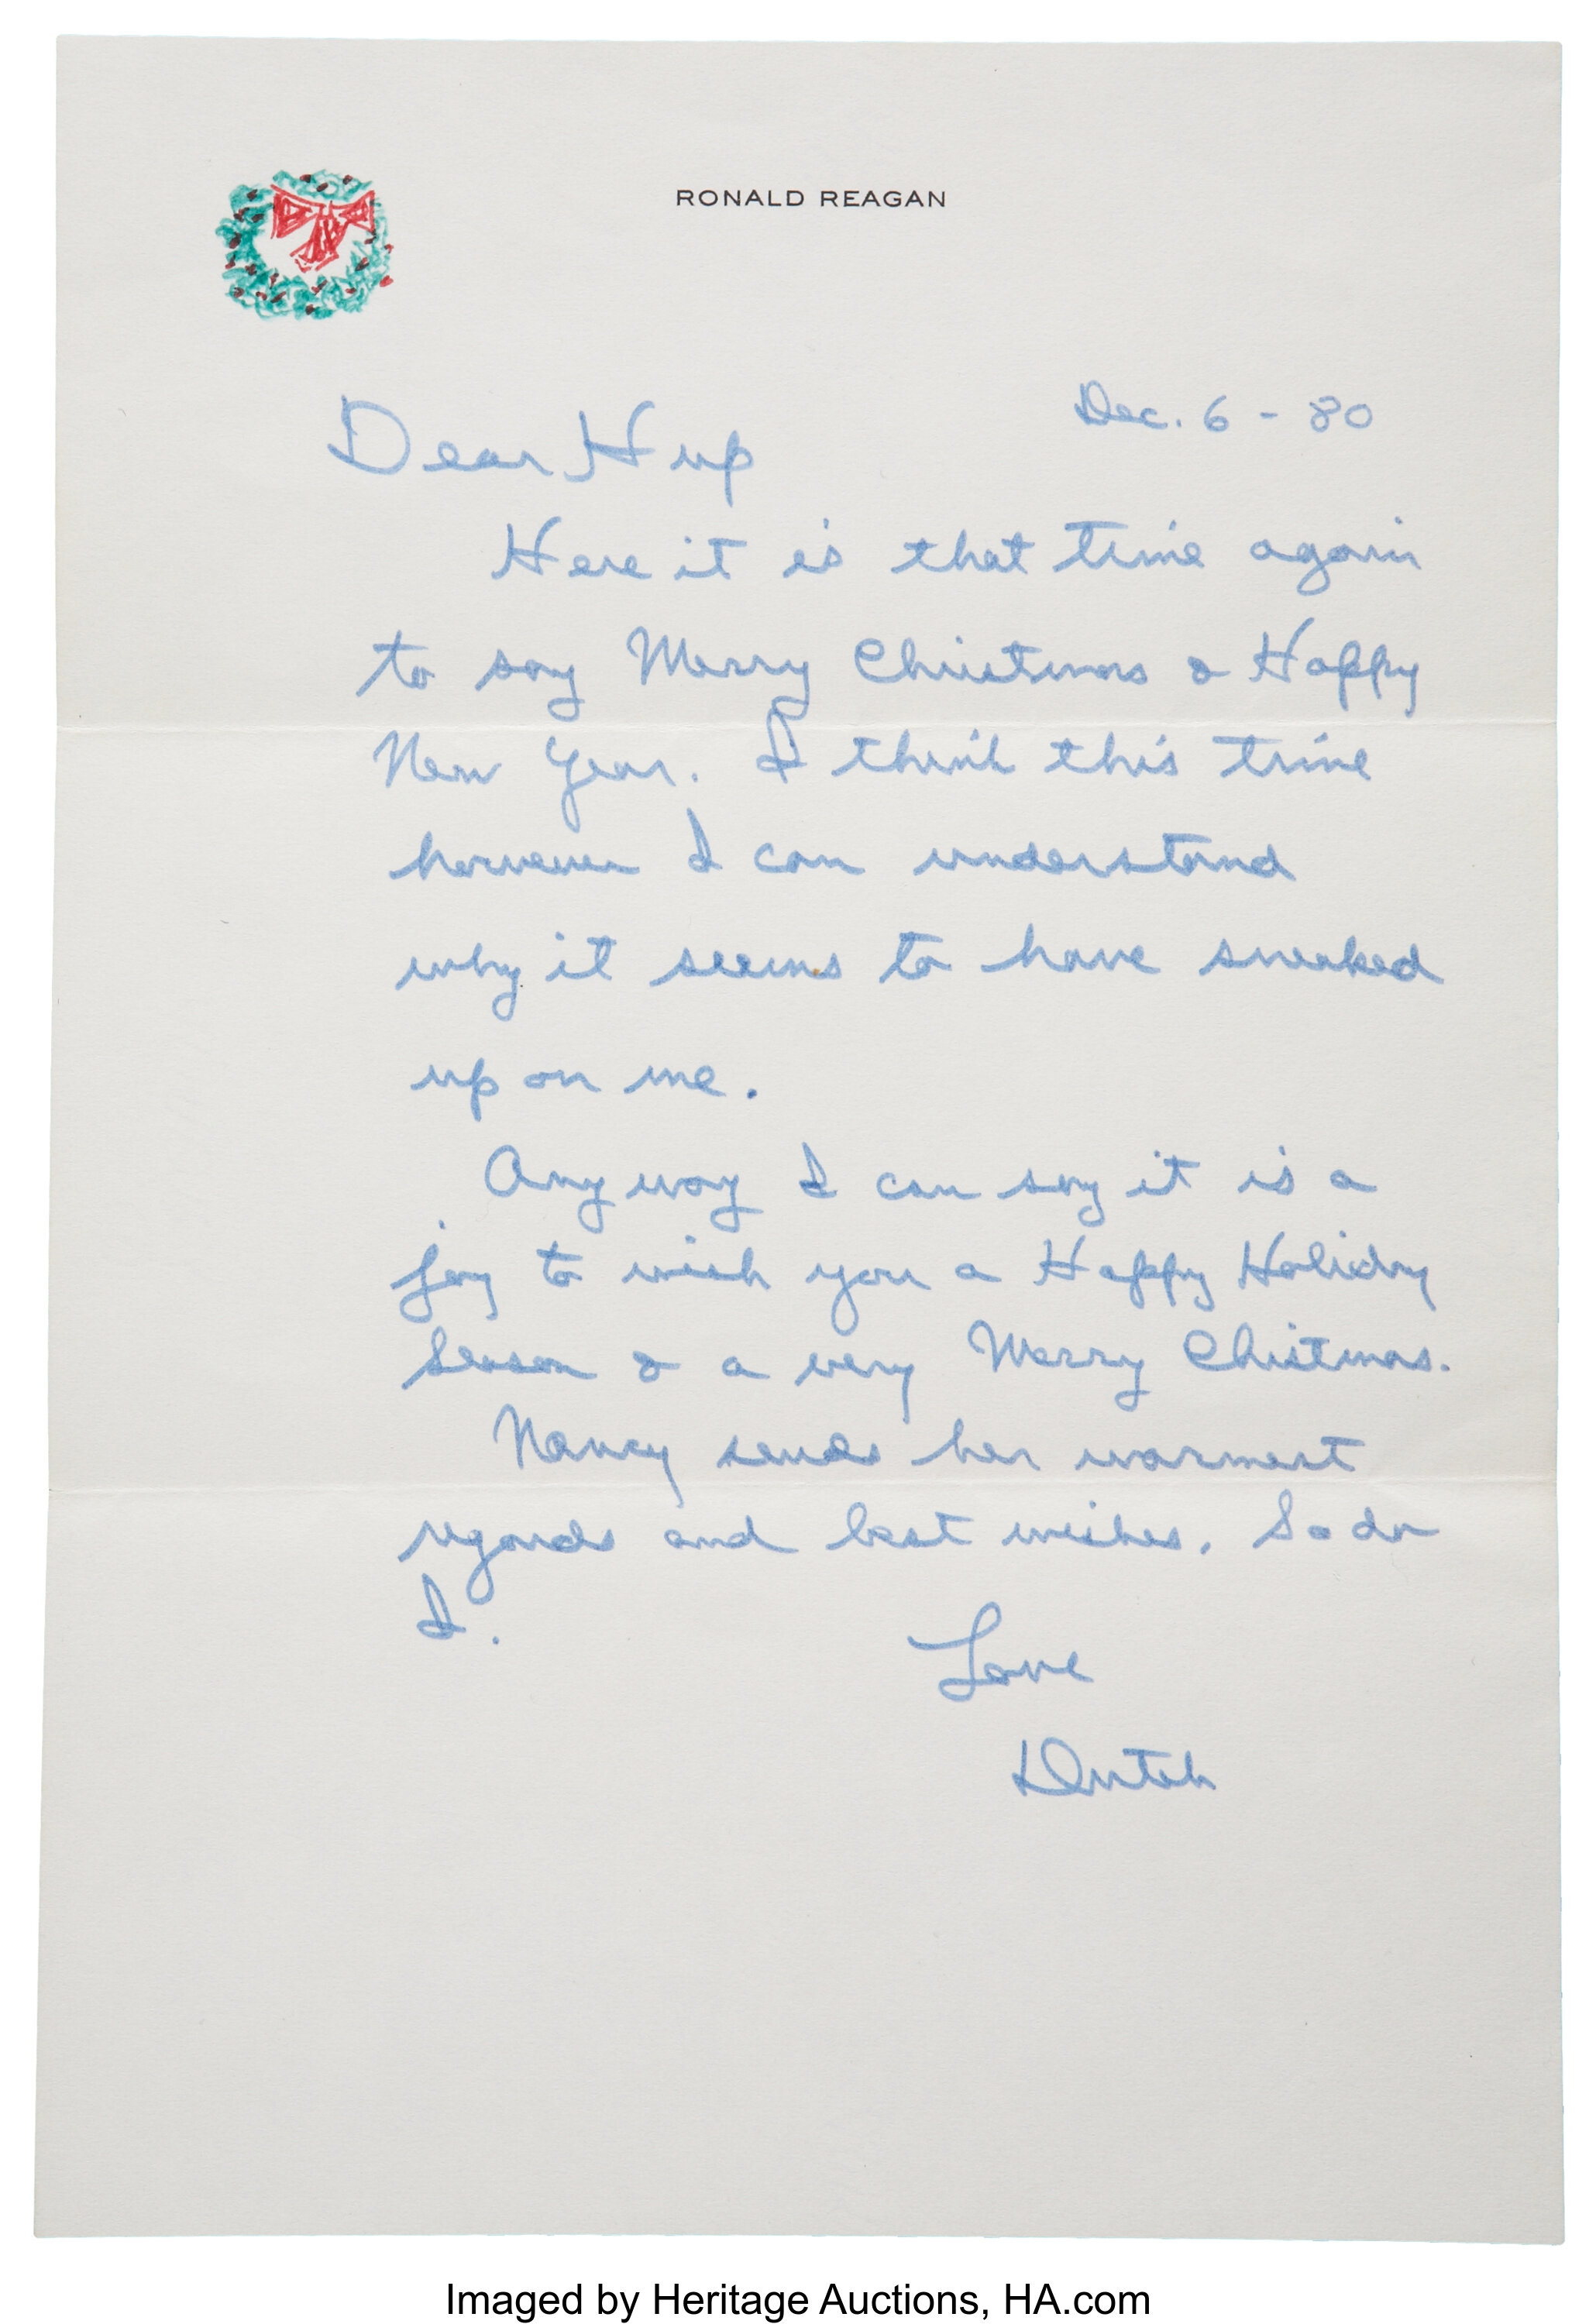 RONALD REAGAN
Dec. 6 - 80
Dear Hup
Here it is that time again
to say Merry Christmas & Happy
New Year. I think this time
however I can understand
why it seems to have sneaked
up on me.
Any way I can say it is a
joy to wish you a Happy Holiday
Season & a very Merry Chistmas.
Nancy sends her warmest
regards and best wishes. So do
I.
Love
Dutch
Imaged by Heritage Auctions, HA.com